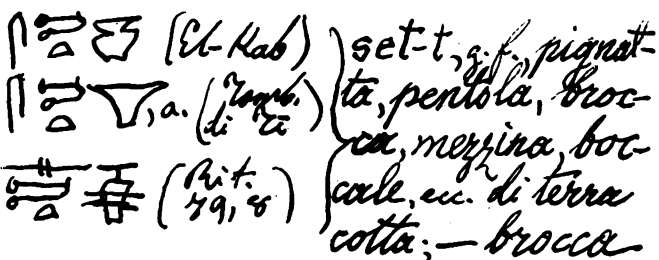 (El-Kab)
, a. (Tomb. di Ti)
(Rit. 79, 8)
set-t, g. f., pignat-
ta, pentola, broc-
ca, mezzina, boc-
cale, ecc. di terra
cotta; — brocca